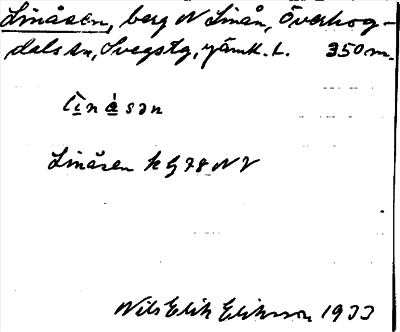 Linåsen, berg N Linån, Överhog-
dals sn, Svegs tg, Jämtl. L. 350 m.
lìnåsən
Linåsen kg 78 NV
Nils Erik Eriksson 1933